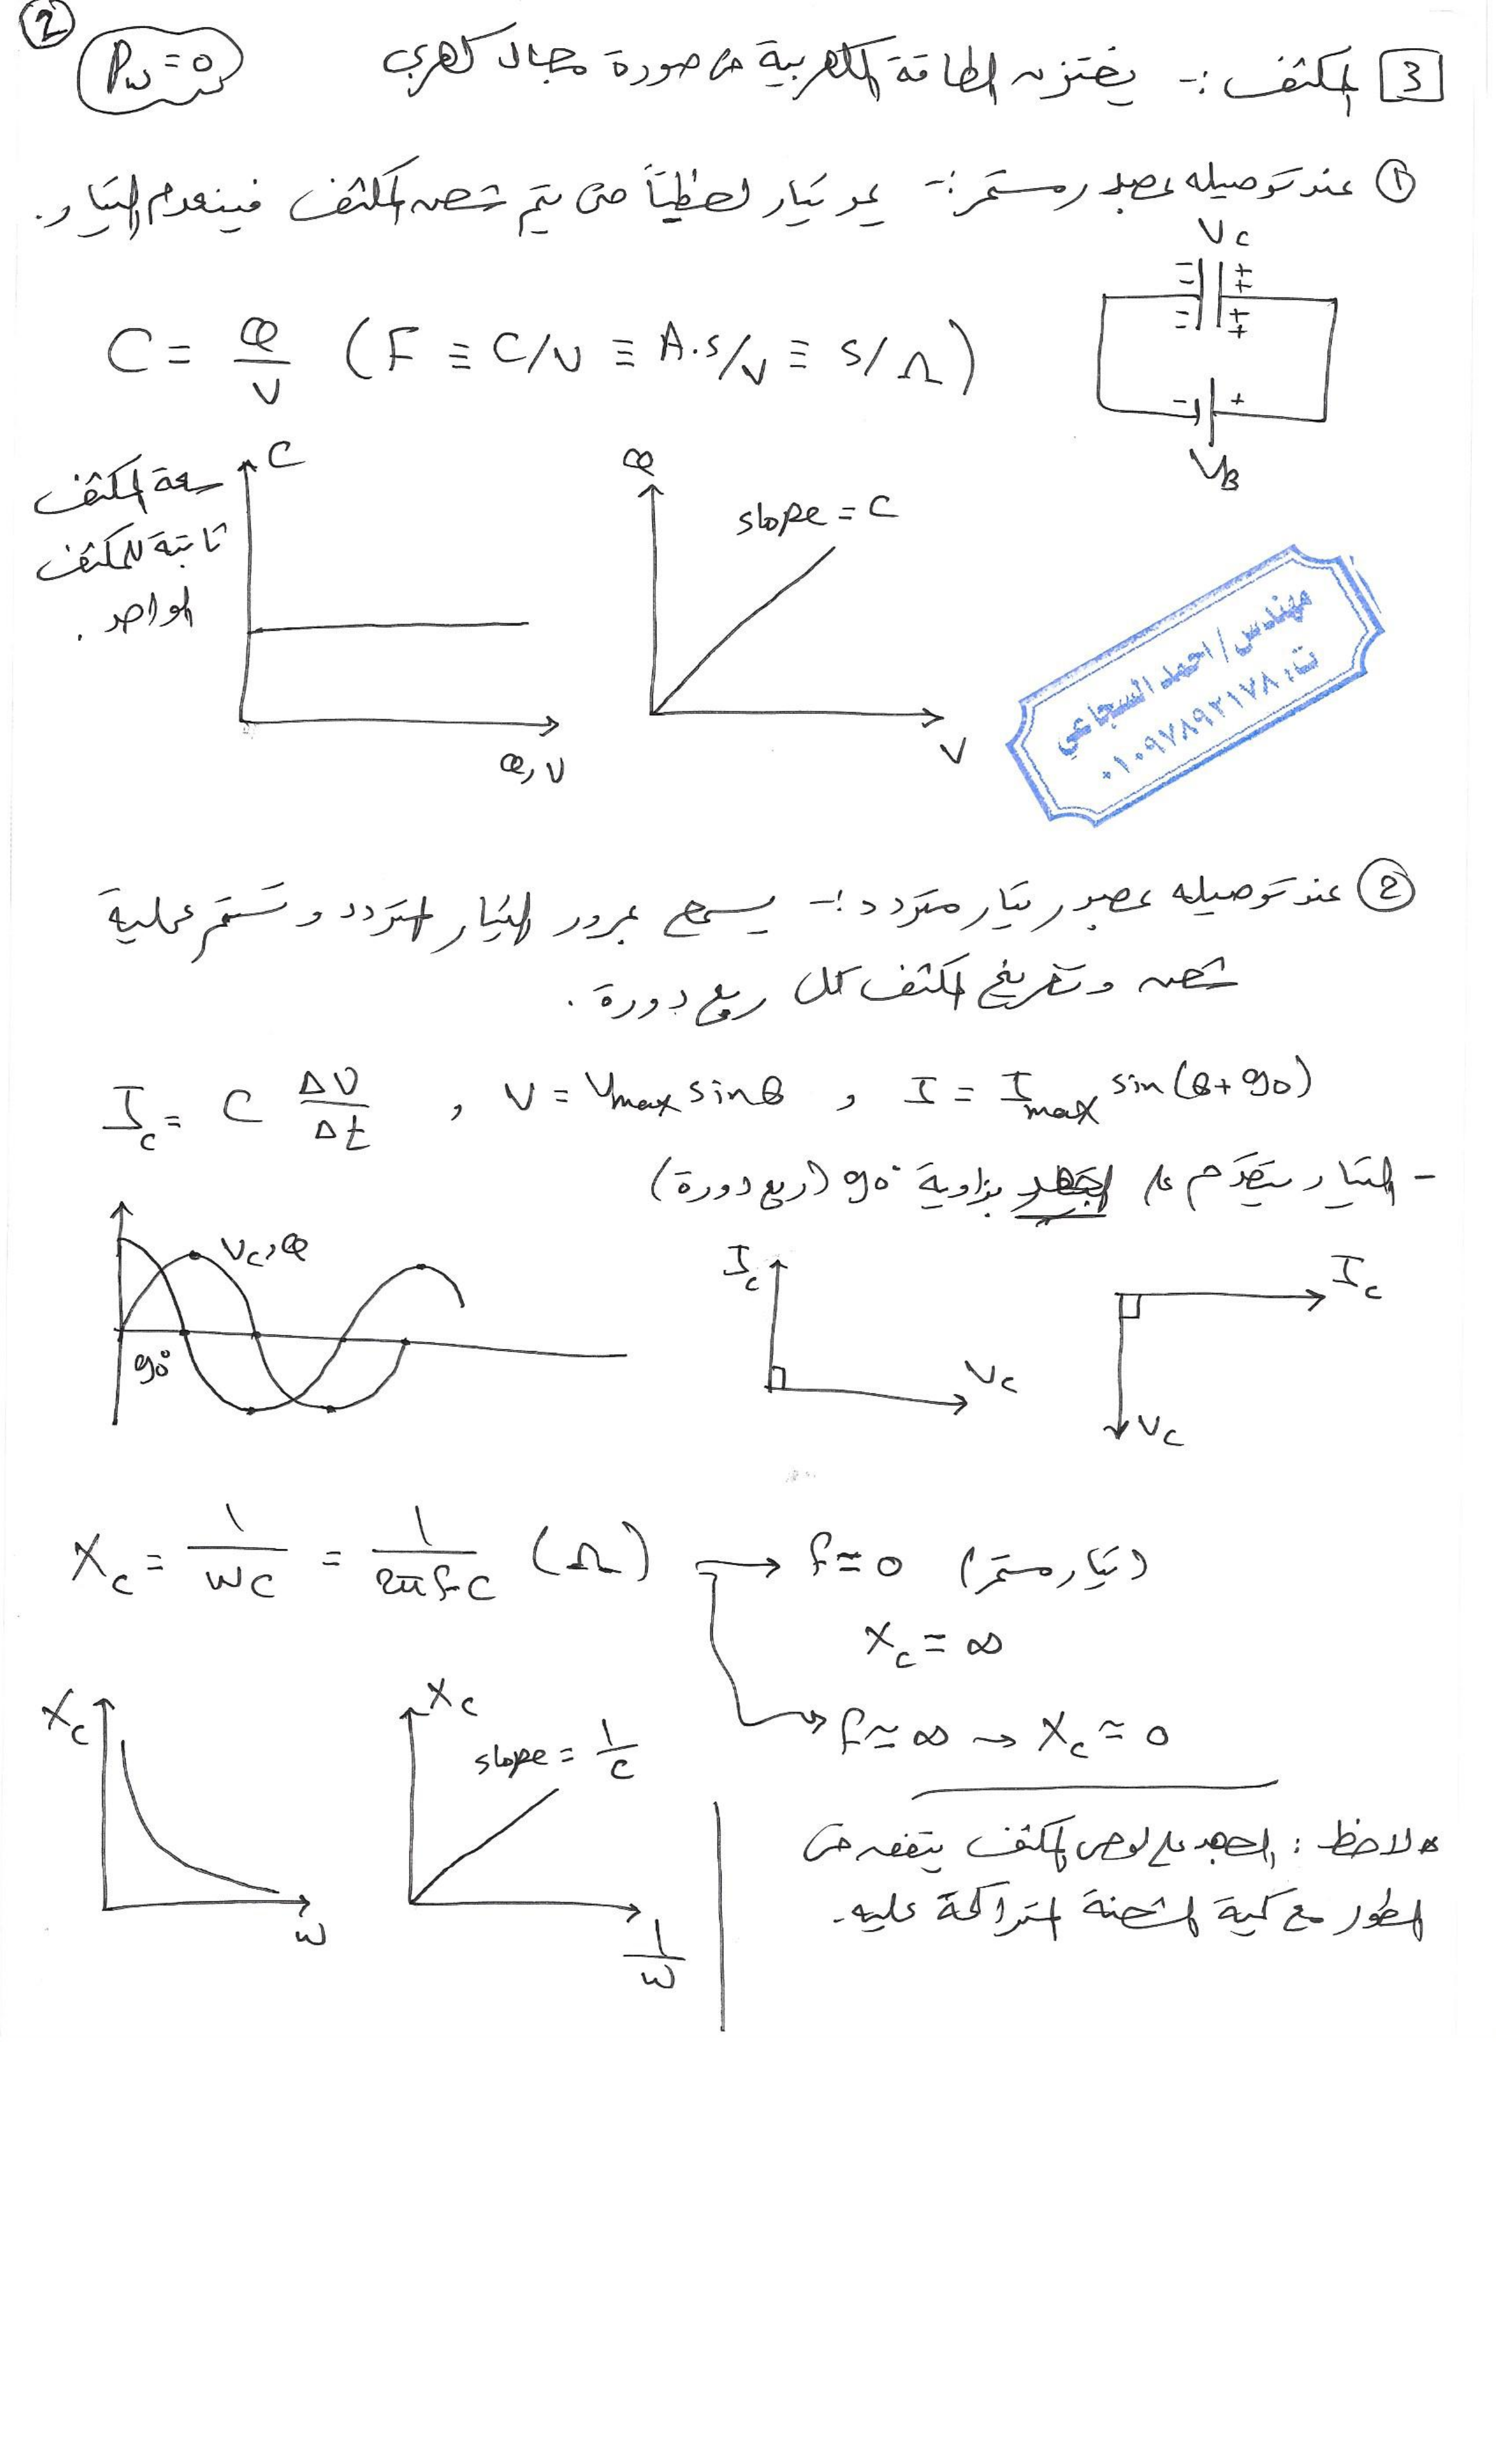 2
Pw = 0
3 المكثف :- يختزن الطاقة الكهربية فى صورة مجال كهربي
1 عند توصيله بمصدر مستمر :- يمر تيار لحظياً حتى يتم شحن المكثف فينعدم التيار.
Vc
C = Q/V (F ≡ C/V ≡ A.s/V ≡ s/Ω)
- - - - + + + +
- +
VB
C
سعة المكثف
ثابتة للمكثف
الواحد.
Q, V
Q
slope = C
V
مهندس / احمد السجاعي
ت: ٠١٠٩٧٨٩٢١٧٨
2 عند توصيله بمصدر تيار متردد :- يسمح بمرور التيار المتردد وتستمر عملية
شحن وتفريغ المكثف كل ربع دورة.
Ic = C ΔV/Δt , V = Vmax sinθ , I = Imax sin(θ+90)
- التيار يتقدم على الجهد بزاوية 90° (ربع دورة)
Vc, Q
90°
Ic
Vc
Ic
Vc
Xc = 1/ωC = 1/2πfC (Ω) → f ≈ 0 (تيار مستمر)
Xc = ∞
f ≈ ∞ → Xc ≈ 0
Xc
ω
Xc
slope = 1/C
1/ω
* لاحظ : الجهد على لوحى المكثف يتفق فى
الطور مع كمية الشحنة المتراكمة عليه.